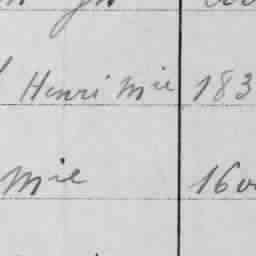 Henri Mie 183
Mie 160